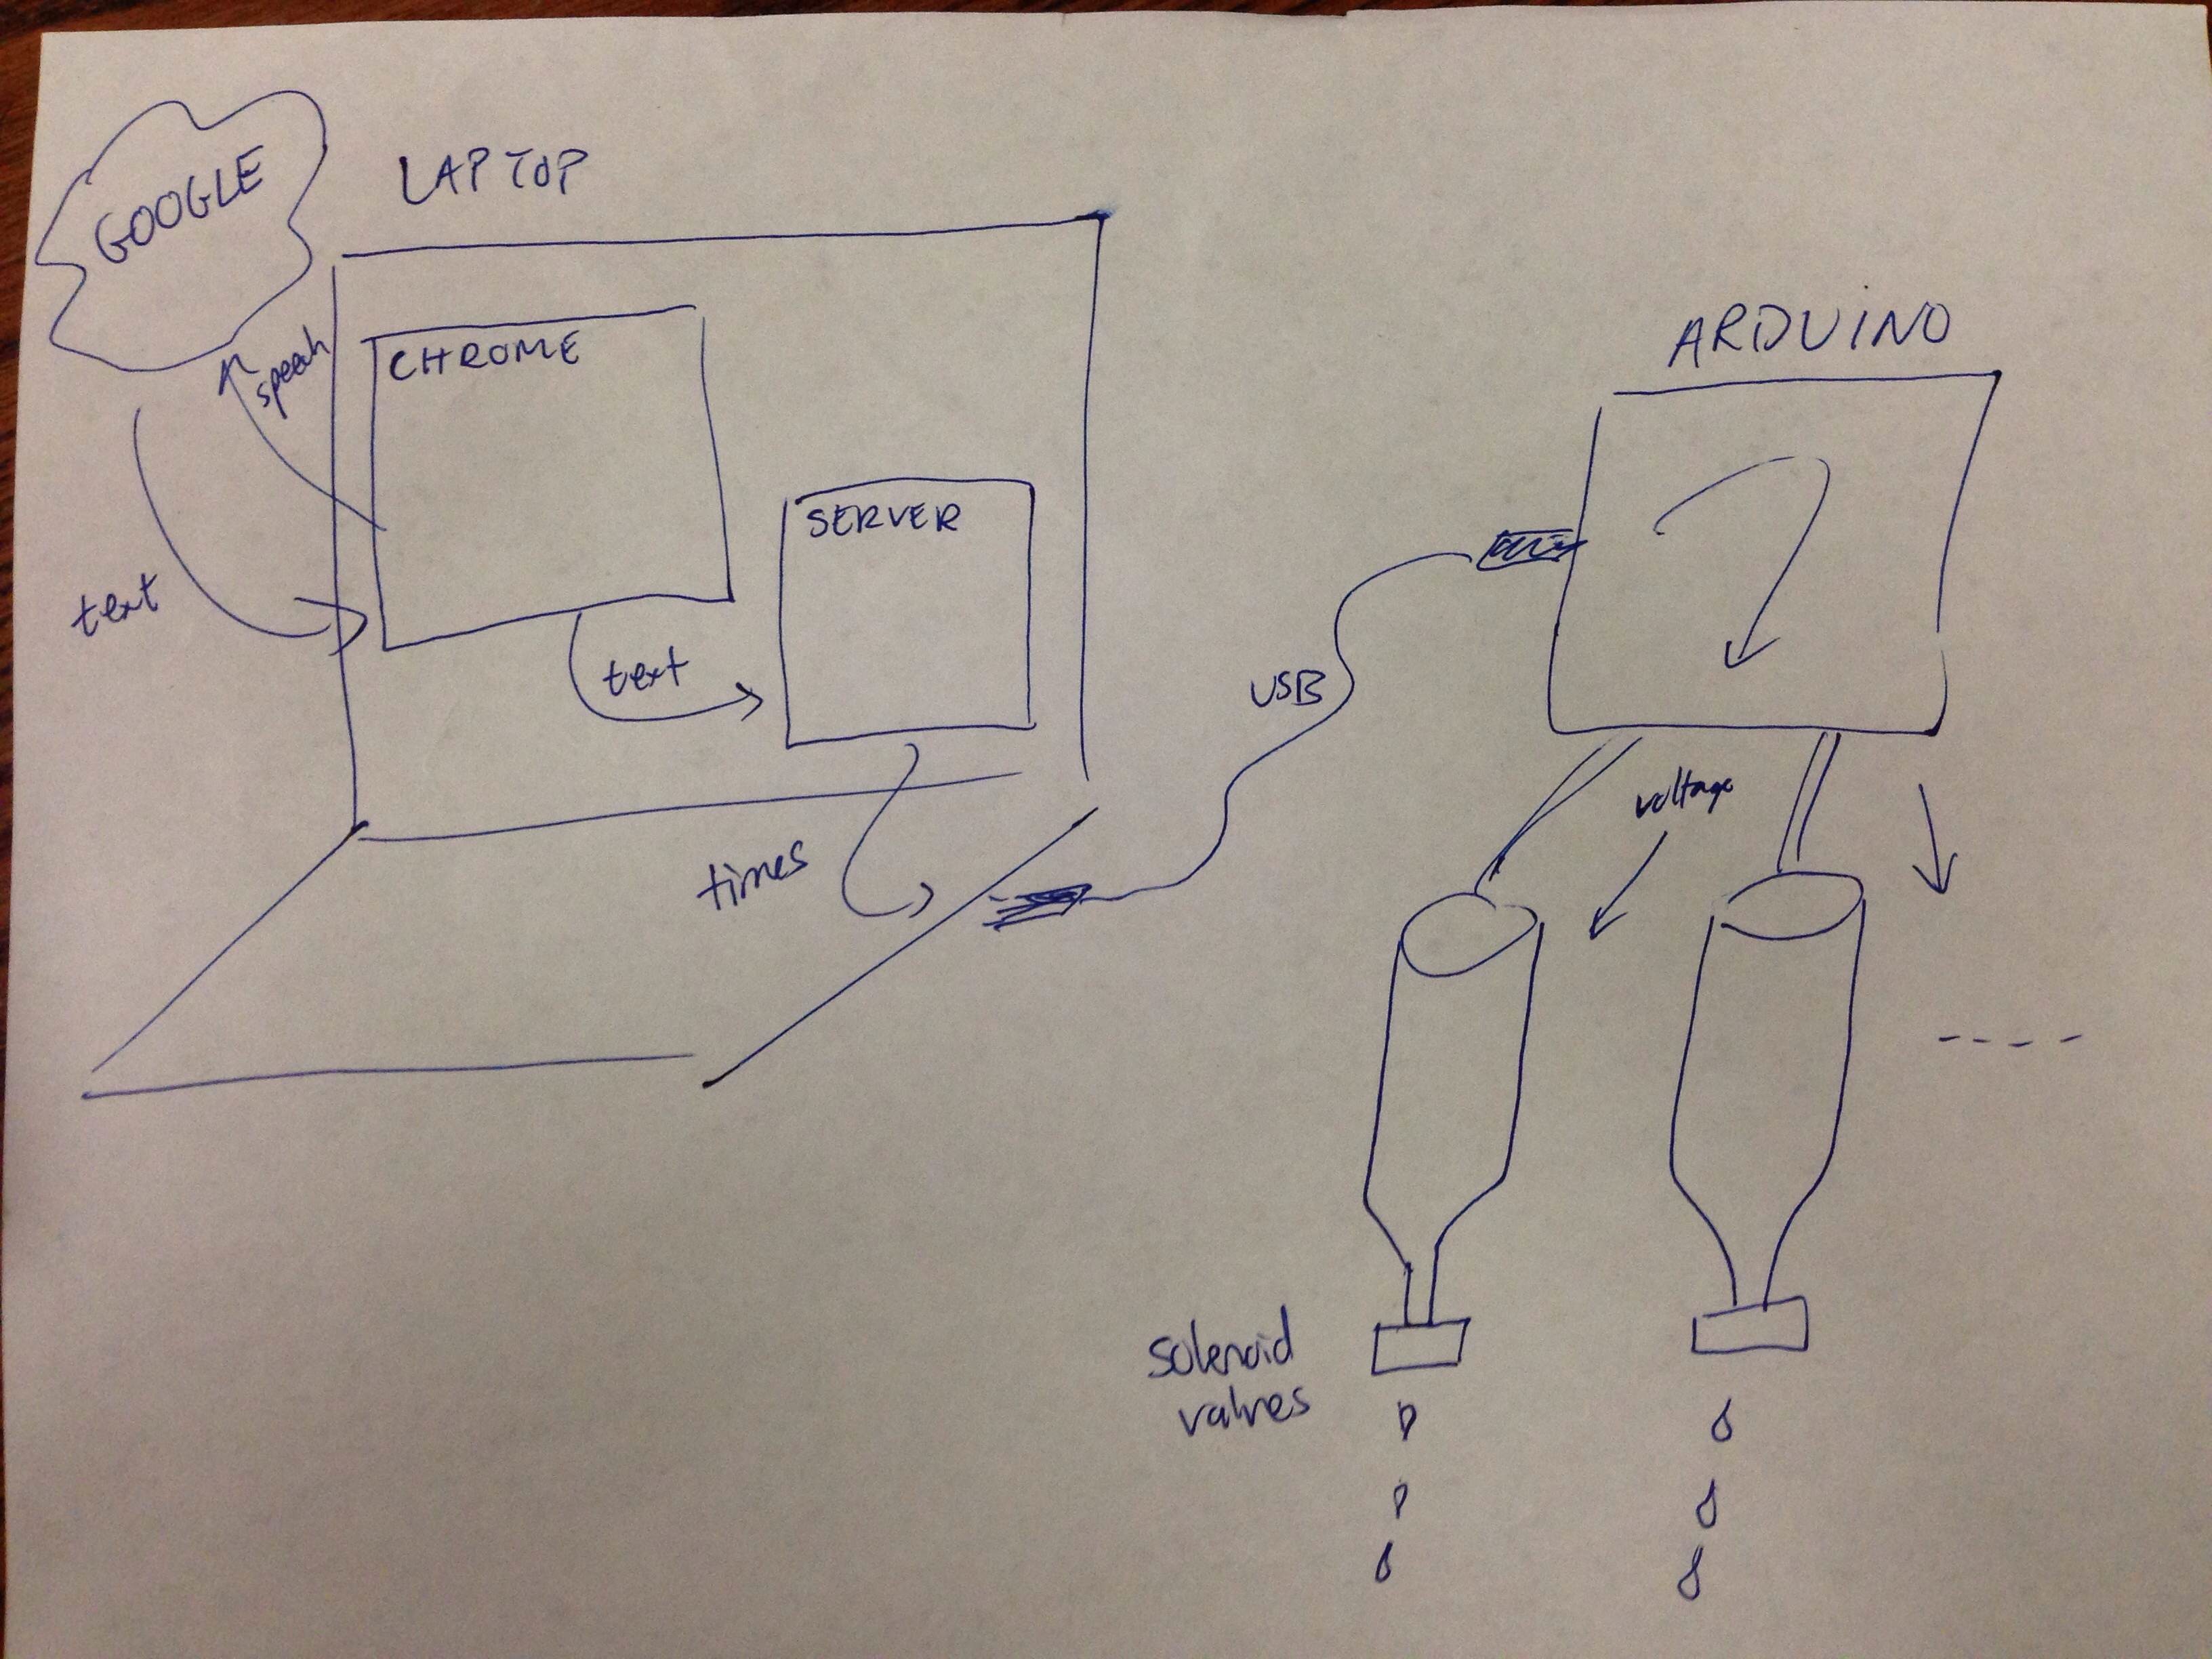 GOOGLE
LAPTOP
CHROME
speech
text
SERVER
text
times
USB
ARDUINO
voltage
solenoid
valves